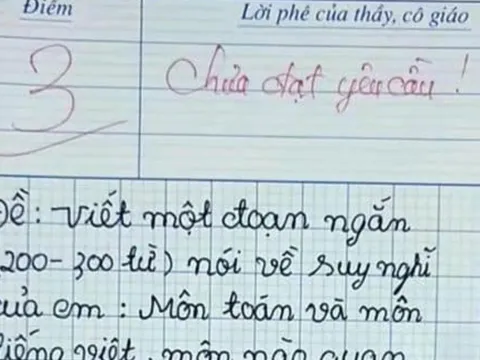 Điểm
Lời phê của thầy, cô giáo
3
Chưa đạt yêu cầu!
Đề: Viết một đoạn ngắn
200-300 từ) nói về suy nghĩ
của em: Môn toán và môn
tiếng việt, môn nào quan